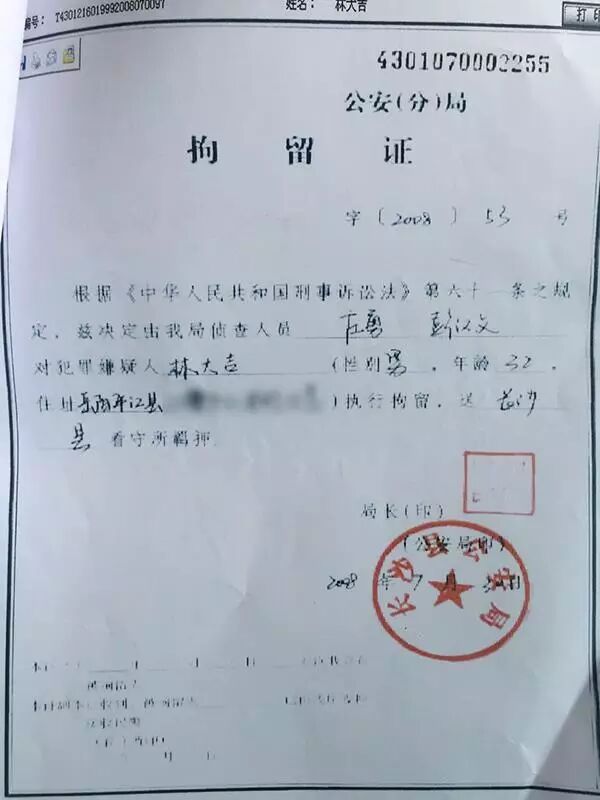 编号： T4301216019992008070097 姓名： 林大吉 打印
4301070002255
公安(分)局
拘留证
字〔2008〕53号
根据《中华人民共和国刑事诉讼法》第六十一条之规
定，兹决定由我局侦查人员 左勇 彭汉文
对犯罪嫌疑人 林大吉 (性别 男，年龄 32，
住址 岳阳平江县 )执行拘留，送 长沙
县 看守所羁押
局长(印)
(公安局印)
长沙县公安局
2008 年 7 月 日